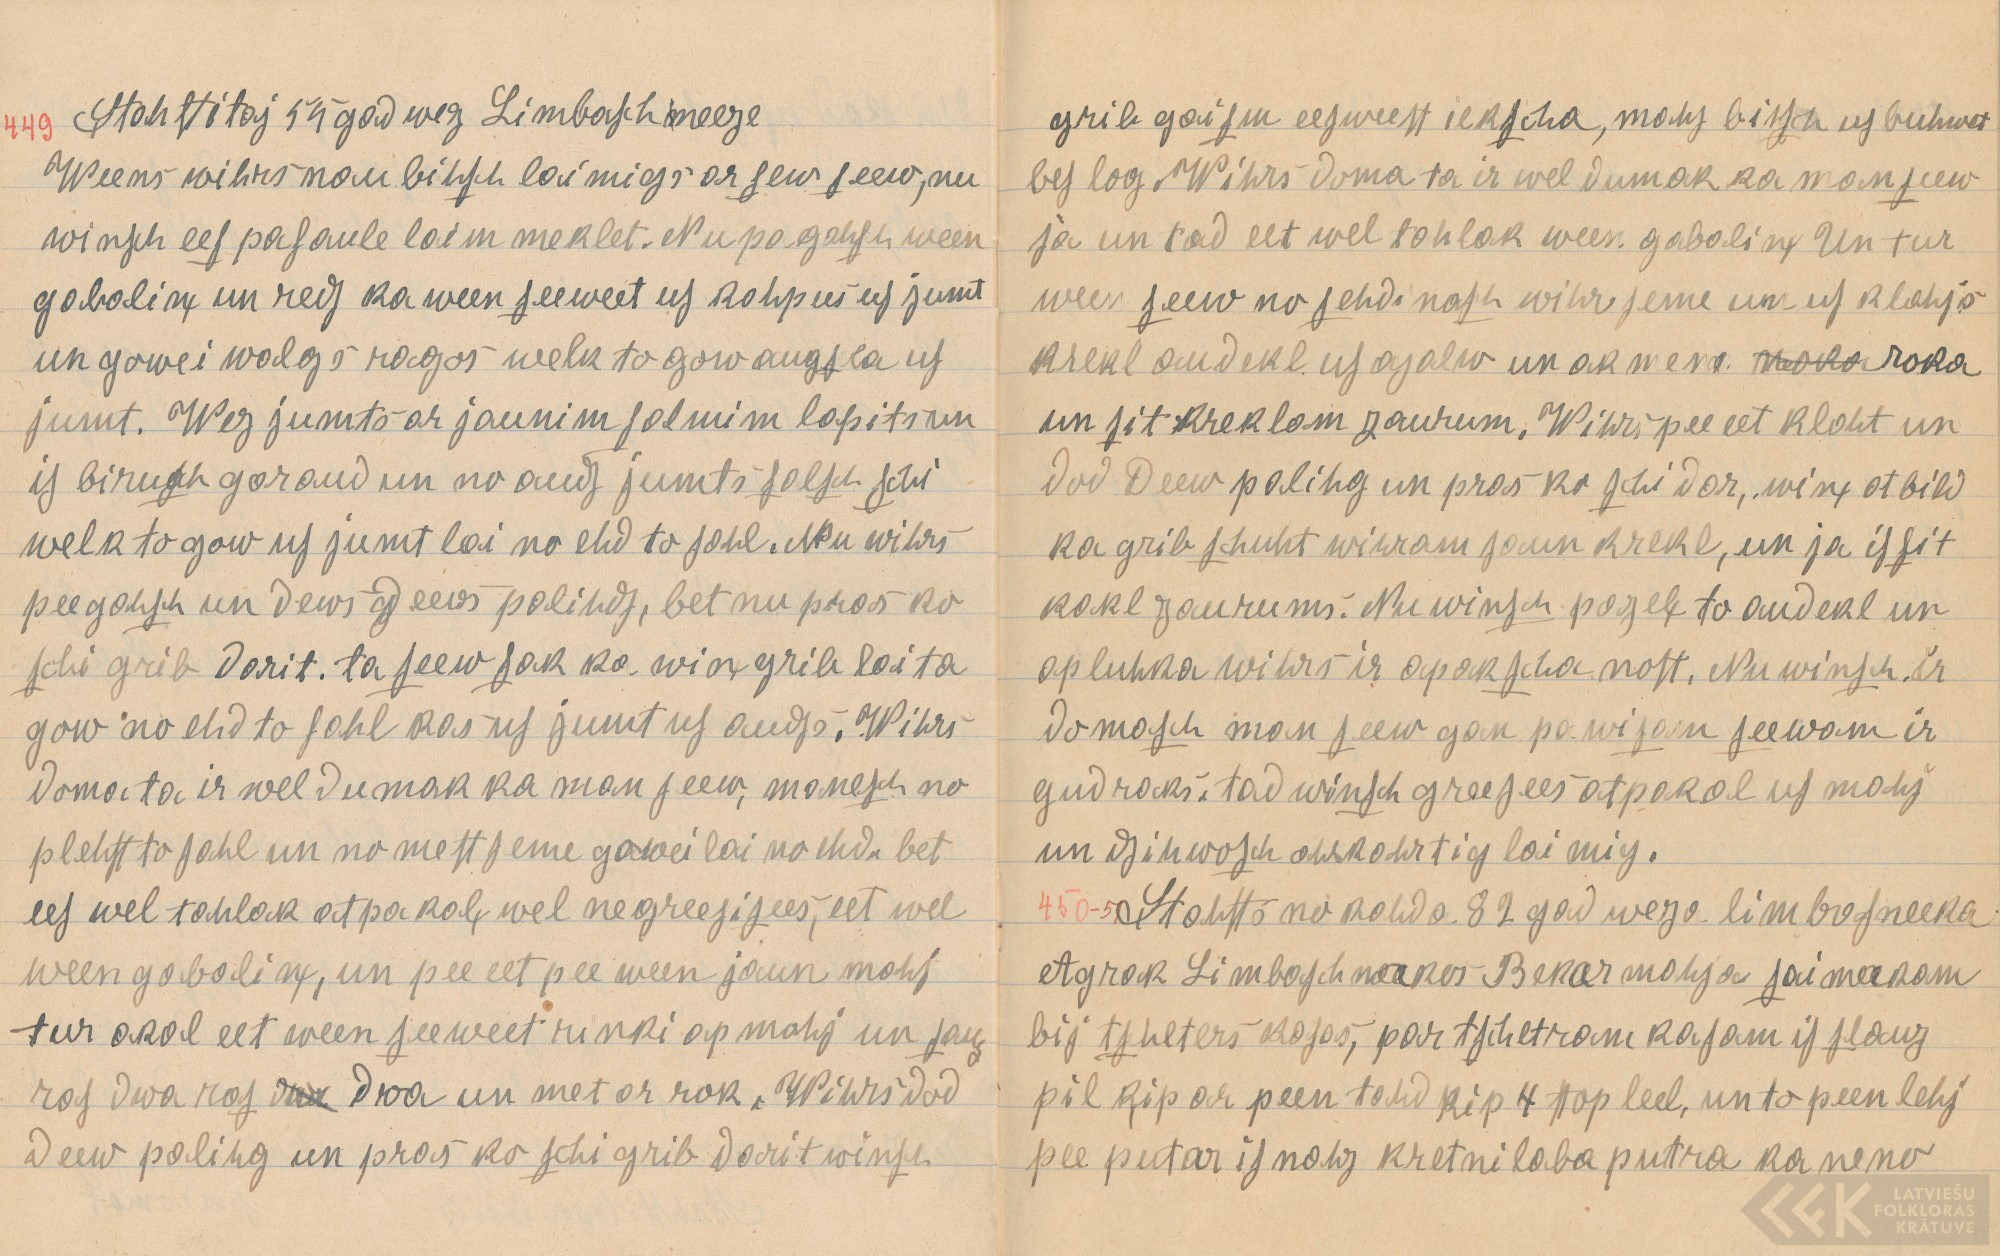 449 Stahstitaj 54 gad wez Limbaschneeze
Weens wihrs nau bihsch laimigs ar sew seew, nu
winsch ees pasaule laim meklet. Nu pagahsch ween
gabalinx un reds ka ween seeweet us kahpus us jumt
un gowei walgs ragos welk to gow augscha us
jumt. Wez jumts ar jaunim salmim lapits un
is birusch goraud un no auds jumts salsch schi
welk to gow us jumt lai no ehd to sahl. Nu wihrs
peegahsch un dews Deews palihds, bet nu pras ko
schi grib darit. ta seew sak ka winx grib lai ta
gow no ehd to sahl kas us jumt us auds. Wihrs
doma ta ir wel dumak ka man seew, manesch no
plehst to sahl un no mest seme gowei lai no ehd. bet
ees wel tahlak atpakalx wel negreesisees, eet wel
ween gabalinx, un pee eet pee ween jaun mahj
tur akal eet ween seeweet rinki ap mahj un sauz
ras dwa ras dwa un met ar rok. Wihrs dod
Deew palihg un pras ko schi grib darit winsch
grib gaism eesweest iekscha, mahj bihsch usbuhwet
bes log. Wihrs doma ta ir wel dumak ka man seew
ja un tad eet wel tahlak ween gabalinx Un tur
ween seew no sehdinasch wihr seme un us klahjs
krekl audekl us agalw un akmens roka
un sit kreklam zaurum. Wihrs pee eet klaht un
dod Deew palihg un pras ko schi dar, winx atbild
ka grib schuht wihram jaun krekl, un ja issit
kakl zaurums. Nu winsch pazelx to audekl un
apluhka wihrs ir apakscha nost. Nu winsch ir
domasch man seew gan pa wisam seewam ir
gudraks. tad winsch greesees atpakal us mahj
un dsihwosch ahrkahrtig laimig.
450-5 Stahsts no kahda 82 gad weza limbasneeka
Agrak Limbaschneekos Bekar mahja saimeekam
bij tscheters kasas, par tschetram kasam is slauz
pil kip ar peen tahd kip 4 stop leel, un to peen lehj
pee putar isnahz kretni laba putra ka neno
LATVIEŠU
FOLKLORAS
KRĀTUVE